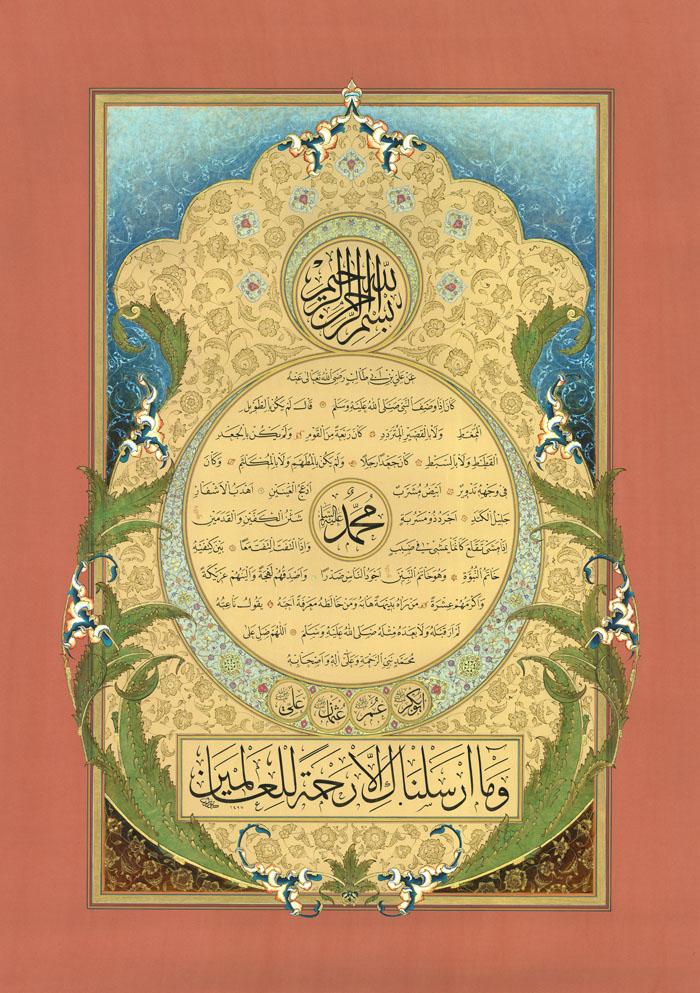 بسم الله الرحمن الرحيم
عن علي بن ابي طالب رضي الله تعالى عنه
كان اذا وصف النبي صلى الله عليه وسلم قال لم يكن بالطويل
الممغط ولا بالقصير المتردد كان ربعة من القوم ولم يكن بالجعد
القطط ولا بالسبط كان جعدا رجلا ولم يكن بالمطهم ولا بالمكلثم وكان
في وجهه تدوير ابيض مشرب ادعج العينين اهدب الاشفار
جليل الكتد اجرد ذو مسربة شثن الكفين والقدمين
محمد عليه السلام
اذا مشى تقلع كانما يمشي في صبب واذا التفت التفت معا بين كتفيه
خاتم النبوة وهو خاتم النبيين اجود الناس صدرا واصدقهم لهجة والينهم عريكة
واكرمهم عشرة من راه بديهة هابه ومن خالطه معرفة احبه يقول ناعته
لم ار قبله ولا بعده مثله صلى الله عليه وسلم اللهم صل على
محمد نبي الرحمة وعلى اله واصحابه
ابوبكر عمر عثمان علي
وما ارسلناك الا رحمة للعالمين